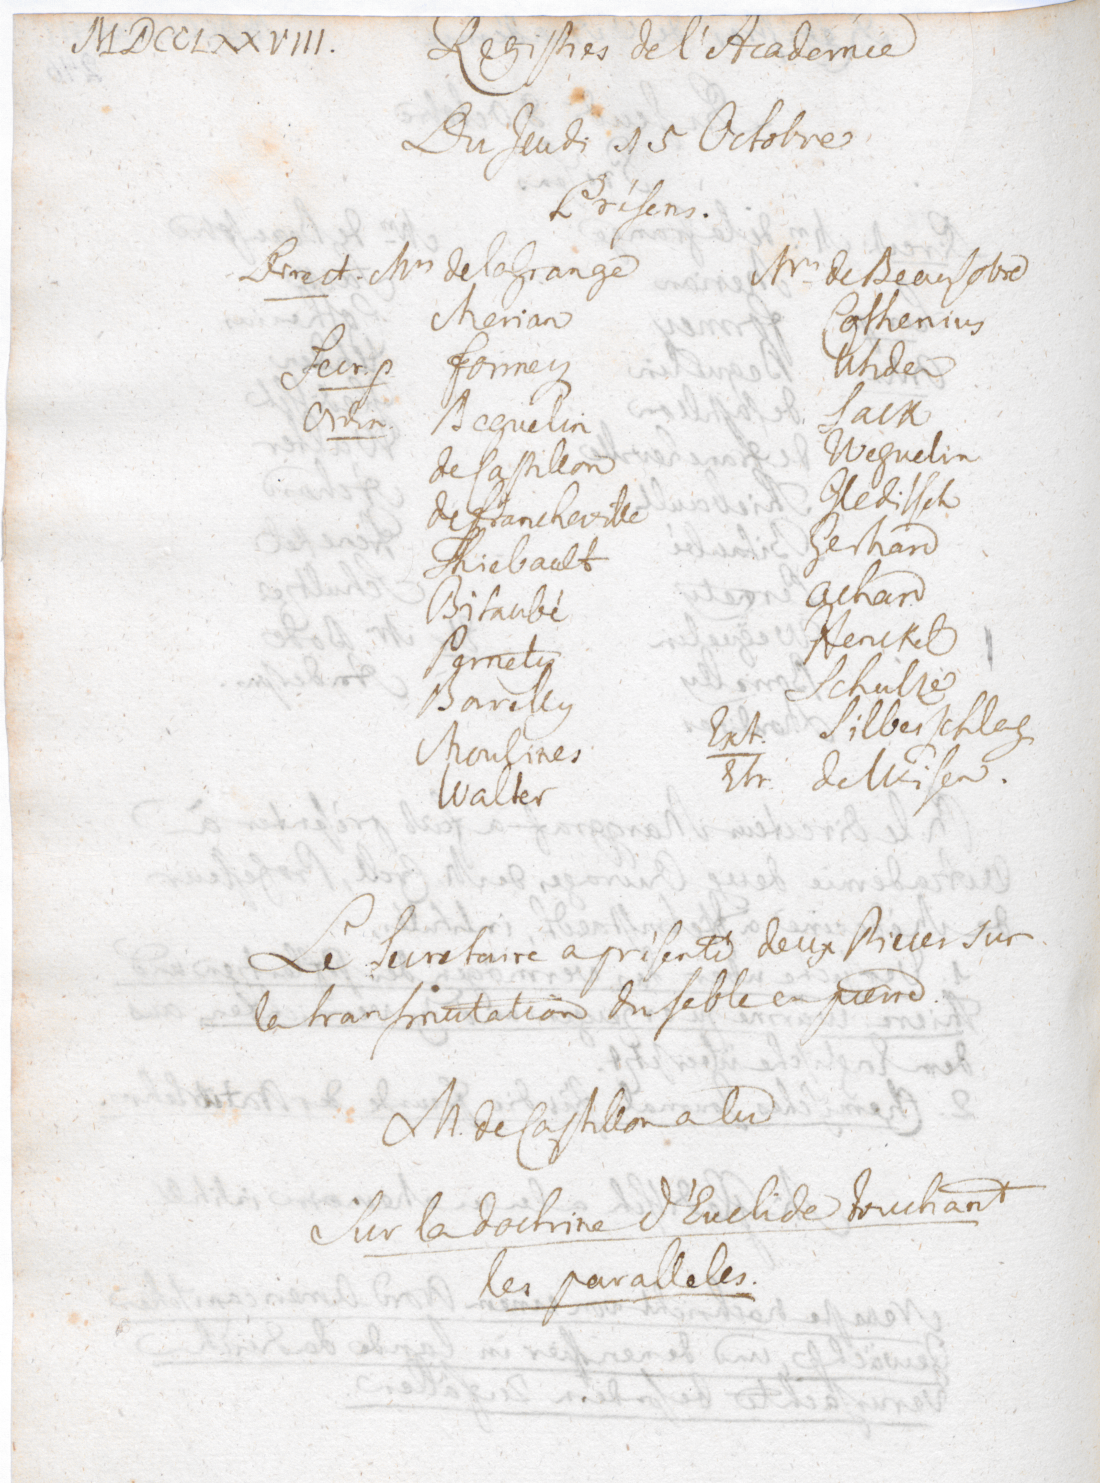 MDCCLXXVIII. Registres de l'Academie
Du Jeudi 15 Octobre
Présens.
Direct. Mrs de la Grange
Merian
Secr. p Formey
Ordin. Beguelin
de Castillon
de Francheville
Thiebault
Bitaubé
Pernety
Borrelly
Moulines
Walter
Mrs de Beausobre
Cothenius
Uhden
Sack
Weguelin
Gleditsch
Gerhard
Achard
Henckel
Schulze
Ext. Silberschlag
Etr.
Le Secretaire a présenté deux Pieces sur
la transmutation du sable en pierre.
M. de Castillon a lu
Sur la doctrine d'Euclide touchant
les paralleles.